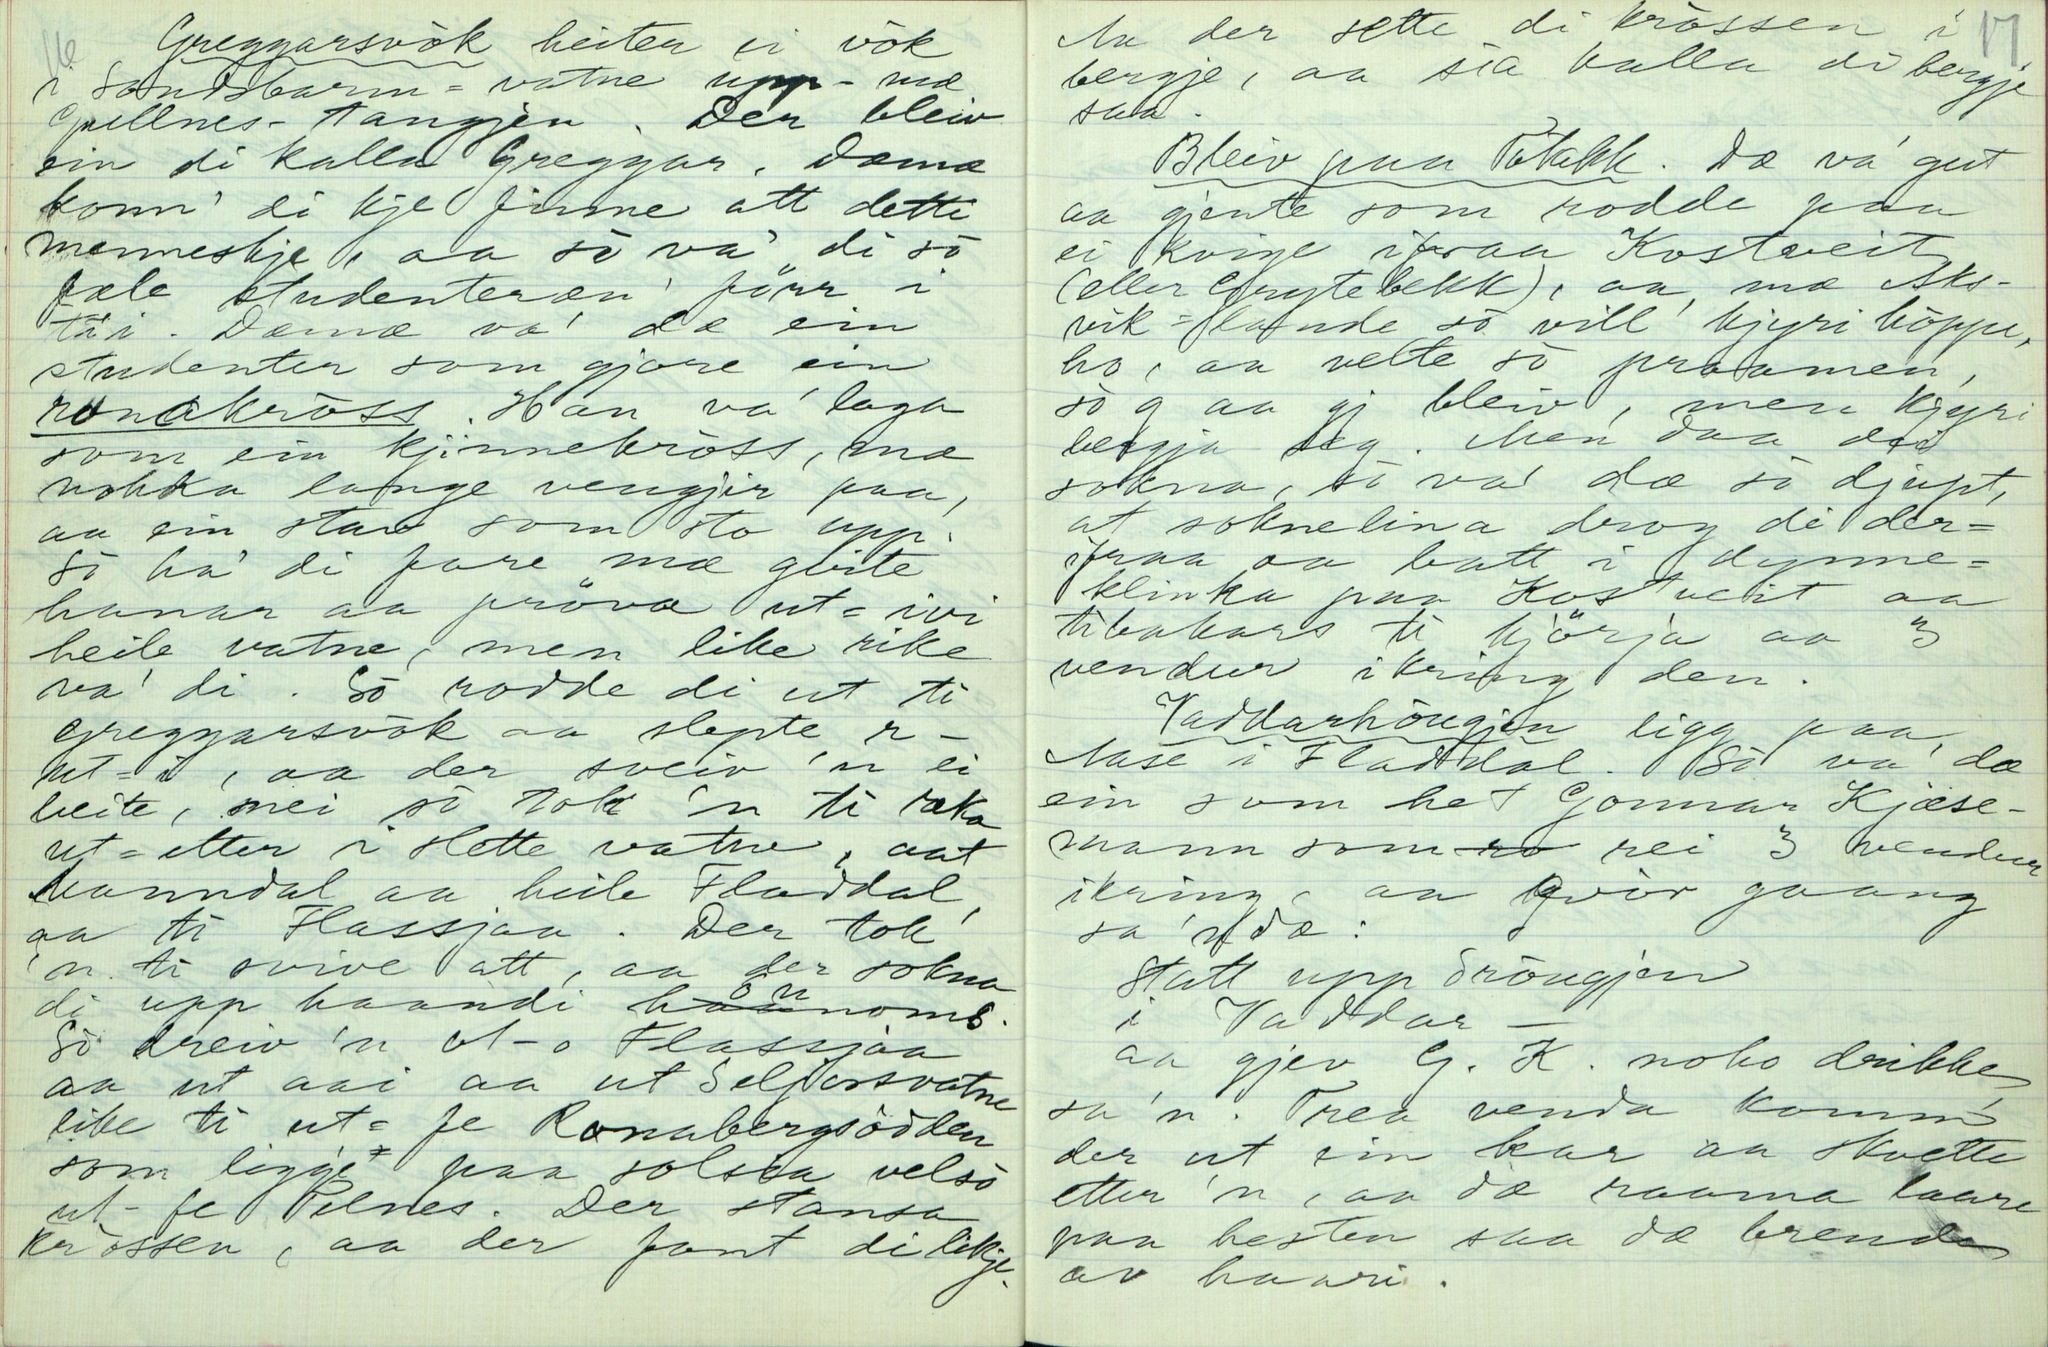 16
Greggarsvök heiter ei vök
i Sandsbarm=vatne upp-mæ
Gjellnes-tangjen. Der bleiv
ein di kalla Greggar. Domæ
konn' di kje finne att detti
menneskje, aa sö va' di sö
fæle studenteræn' förr i
tii. Domæ va' dæ ein
studenter som gjore ein
ronakröss. Han va' laga
som ein kjinnekröss, mæ
nokka lange vengjir paa,
aa ein stav som sto upp.
Sö ha' di fare mæ gvite
hanar aa pröva ut=ivi
heile vatne, men like rike
va' di. Sö rodde di ut ti
Greggarsvök aa slepte 'n
ut-i, aa der sveiv 'n ei
beite, mei sö tok 'n ti ræka
ut=etter i slette vatne, aat
Manndal aa heile Fladdal,
aa ti Flassjaa. Der tok
'n ti svive att, aa der sokna
di upp haandi hönnoms.
Sö dreiv 'n ut-o Flassjaa
aa ut aai aa ut Seljorsvatne
like ti ut=fe Ronabergsödden
som ligge paa solsia velsö
ut-fe Pilnes. Der stansa
krössen, aa der fant di likje.
17
Aa der sette di krössen i
bergje, aa sia kalla di bergje
saa.
Bleiv paa Tötakk. Dæ va' gut
aa gjente som rodde paa
ei kvige ifraa Kostveit
(eller Grytebekk), aa mæ Aks-
vik=lande sö vill' kjyri höppe,
ho, aa velte sö praamen,
sö g aa gj bleiv, men kjyri
bergja seg. Men daa dei
sokna, sö va' dæ sö djupt,
at soknelina drog di der=
ifraa aa batt i dynne=
klinka paa Kostveit aa
tibakars ti kjörja aa 3
vendur ikring den.
Vaddarhöugjen ligg paa
Aase i Fladdal. Sö va' dæ
ein som het Gonnar Kjæse-
mann som rei 3 vendur
ikring, aa kvör gaang
sa 'n dæ:
Statt upp Dröugjen
i Vaddar —
aa gjev G. K. noko drikke,
sa 'n. Trea venda komm
der ut ein kar aa skvette
etter 'n, aa dæ raama laare
paa hesten saa dæ brende
av haari.